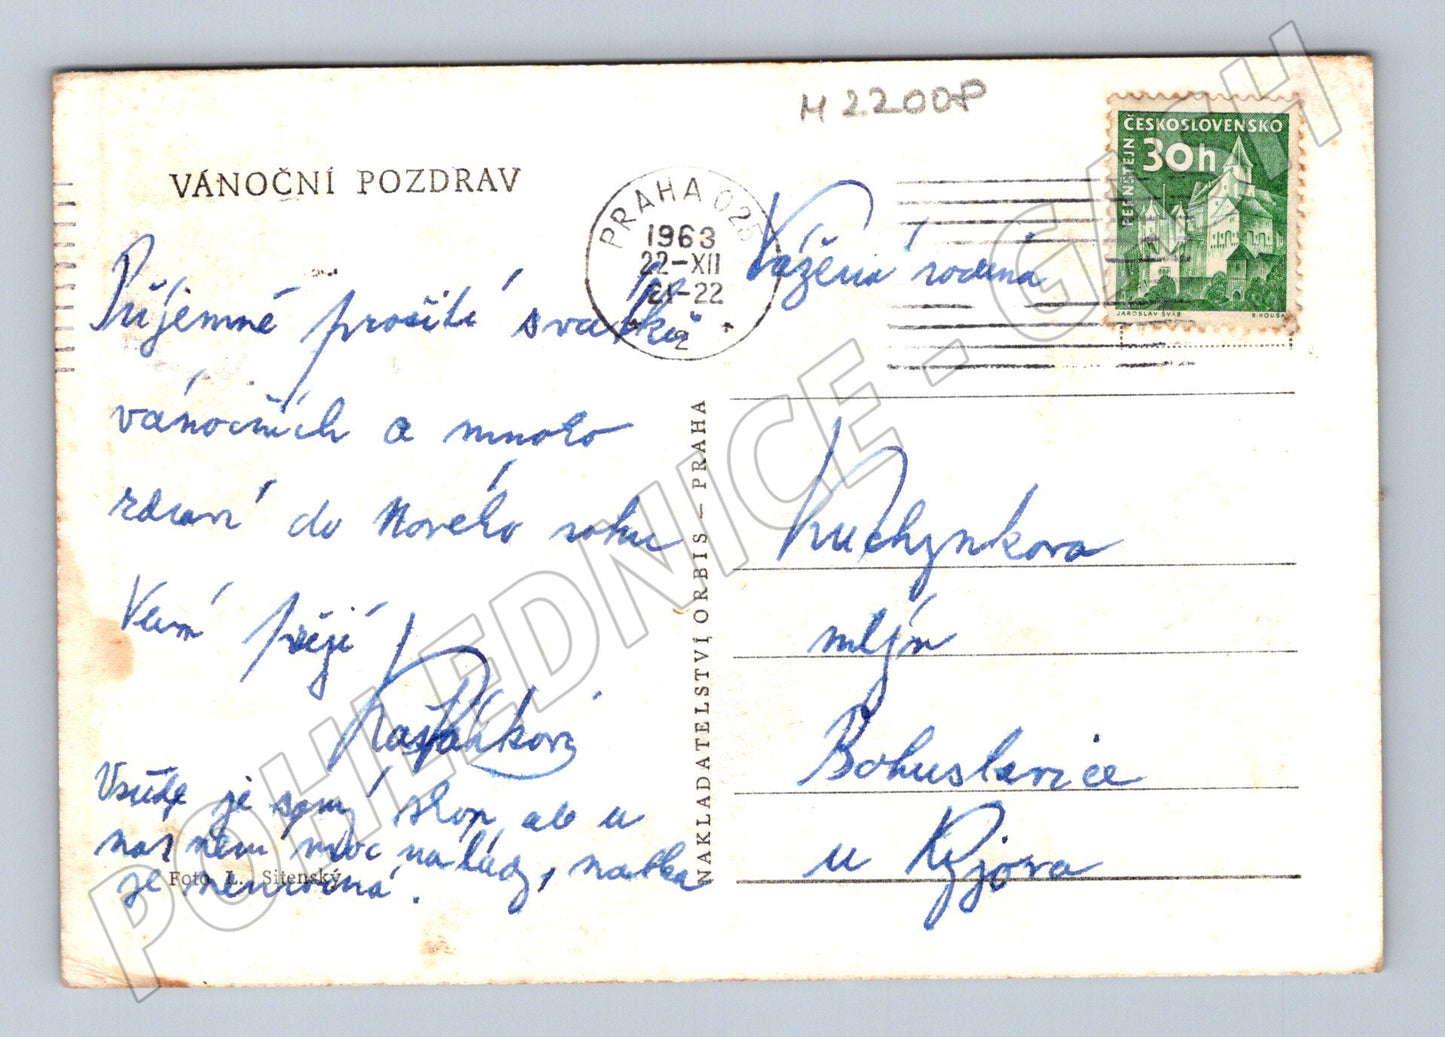 M 2200P
VÁNOČNÍ POZDRAV
ČESKOSLOVENSKO
30h
PERNŠTEJN
JAROSLAV ŠVÁB
B. HOUSA
PRAHA 025
1963
22-XII
21-22
2
Příjemné prožití svátků
vánočních a mnoho
zdraví do Nového roku
Vám přejí
Všude je samý shon ale u
nás není moc nálady, matka
je nemocná.
Foto L. Sitenský
NAKLADATELSTVÍ ORBIS – PRAHA
Vážená rodina
Kuchynkova
mlýn
Bohuslavice
u Kyjova
POHLEDNICE - GASH